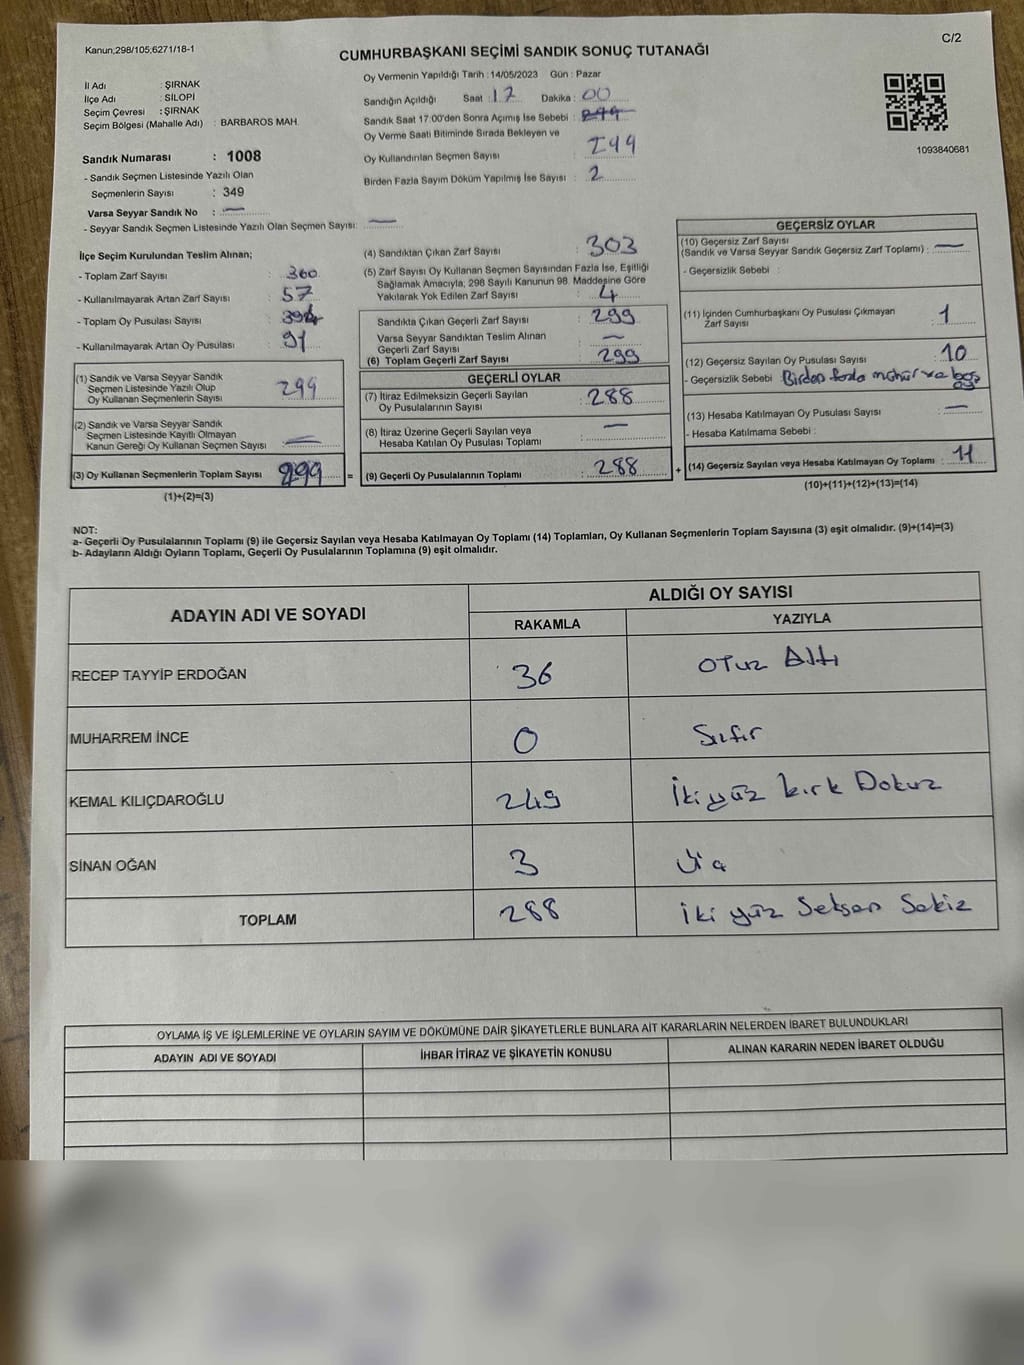 Kanun,298/105,6271/18-1
C/2
CUMHURBAŞKANI SEÇİMİ SANDIK SONUÇ TUTANAĞI
İl Adı : ŞIRNAK
İlçe Adı : SİLOPİ
Seçim Çevresi : ŞIRNAK
Seçim Bölgesi (Mahalle Adı) : BARBAROS MAH.
Sandık Numarası : 1008
- Sandık Seçmen Listesinde Yazılı Olan
Seçmenlerin Sayısı : 349
Varsa Seyyar Sandık No : —
- Seyyar Sandık Seçmen Listesinde Yazılı Olan Seçmen Sayısı: —
Oy Vermenin Yapıldığı Tarih : 14/05/2023 Gün : Pazar
Sandığın Açıldığı Saat : 17 Dakika : 00
Sandık Saat 17:00'den Sonra Açımış İse Sebebi : 299
Oy Verme Saati Bitiminde Sırada Bekleyen ve
Oy Kullandırılan Seçmen Sayısı : 299
Birden Fazla Sayım Döküm Yapılmış İse Sayısı : 2
1093840681
İlçe Seçim Kurulundan Teslim Alınan;
- Toplam Zarf Sayısı : 360
- Kullanılmayarak Artan Zarf Sayısı : 57
- Toplam Oy Pusulası Sayısı : 394
- Kullanılmayarak Artan Oy Pusulası : 91
(1) Sandık ve Varsa Seyyar Sandık
Seçmen Listesinde Yazılı Olup
Oy Kullanan Seçmenlerin Sayısı : 299
(2) Sandık ve Varsa Seyyar Sandık
Seçmen Listesinde Kayıtlı Olmayan
Kanun Gereği Oy Kullanan Seçmen Sayısı : —
(3) Oy Kullanan Seçmenlerin Toplam Sayısı : 299 =
(1)+(2)=(3)
(4) Sandıktan Çıkan Zarf Sayısı : 303
(5) Zarf Sayısı Oy Kullanan Seçmen Sayısından Fazla İse, Eşitliği
Sağlamak Amacıyla; 298 Sayılı Kanunun 98. Maddesine Göre
Yakılarak Yok Edilen Zarf Sayısı : 4
Sandıkta Çıkan Geçerli Zarf Sayısı : 299
Varsa Seyyar Sandıktan Teslim Alınan
Geçerli Zarf Sayısı : —
(6) Toplam Geçerli Zarf Sayısı : 299
GEÇERLİ OYLAR
(7) İtiraz Edilmeksizin Geçerli Sayılan
Oy Pusulalarının Sayısı : 288
(8) İtiraz Üzerine Geçerli Sayılan veya
Hesaba Katılan Oy Pusulası Toplamı : —
(9) Geçerli Oy Pusulalarının Toplamı : 288 +
GEÇERSİZ OYLAR
(10) Geçersiz Zarf Sayısı
(Sandık ve Varsa Seyyar Sandık Geçersiz Zarf Toplamı) : —
- Geçersizlik Sebebi :
(11) İçinden Cumhurbaşkanı Oy Pusulası Çıkmayan
Zarf Sayısı : 1
(12) Geçersiz Sayılan Oy Pusulası Sayısı : 10
- Geçersizlik Sebebi : Birden fazla mühür ve boş
(13) Hesaba Katılmayan Oy Pusulası Sayısı : —
- Hesaba Katılmama Sebebi :
(14) Geçersiz Sayılan veya Hesaba Katılmayan Oy Toplamı : 11
(10)+(11)+(12)+(13)=(14)
NOT:
a- Geçerli Oy Pusulalarının Toplamı (9) ile Geçersiz Sayılan veya Hesaba Katılmayan Oy Toplamı (14) Toplamları, Oy Kullanan Seçmenlerin Toplam Sayısına (3) eşit olmalıdır. (9)+(14)=(3)
b- Adayların Aldığı Oyların Toplamı, Geçerli Oy Pusulalarının Toplamına (9) eşit olmalıdır.
ADAYIN ADI VE SOYADI
ALDIĞI OY SAYISI
RAKAMLA YAZIYLA
RECEP TAYYİP ERDOĞAN 36 Otuz Altı
MUHARREM İNCE 0 Sıfır
KEMAL KILIÇDAROĞLU 249 İki yüz kırk Dokuz
SİNAN OĞAN 3 Üç
TOPLAM 288 İki yüz Seksen Sekiz
OYLAMA İŞ VE İŞLEMLERİNE VE OYLARIN SAYIM VE DÖKÜMÜNE DAİR ŞİKAYETLERLE BUNLARA AİT KARARLARIN NELERDEN İBARET BULUNDUKLARI
ADAYIN ADI VE SOYADI İHBAR İTİRAZ VE ŞİKAYETİN KONUSU ALINAN KARARIN NEDEN İBARET OLDUĞU